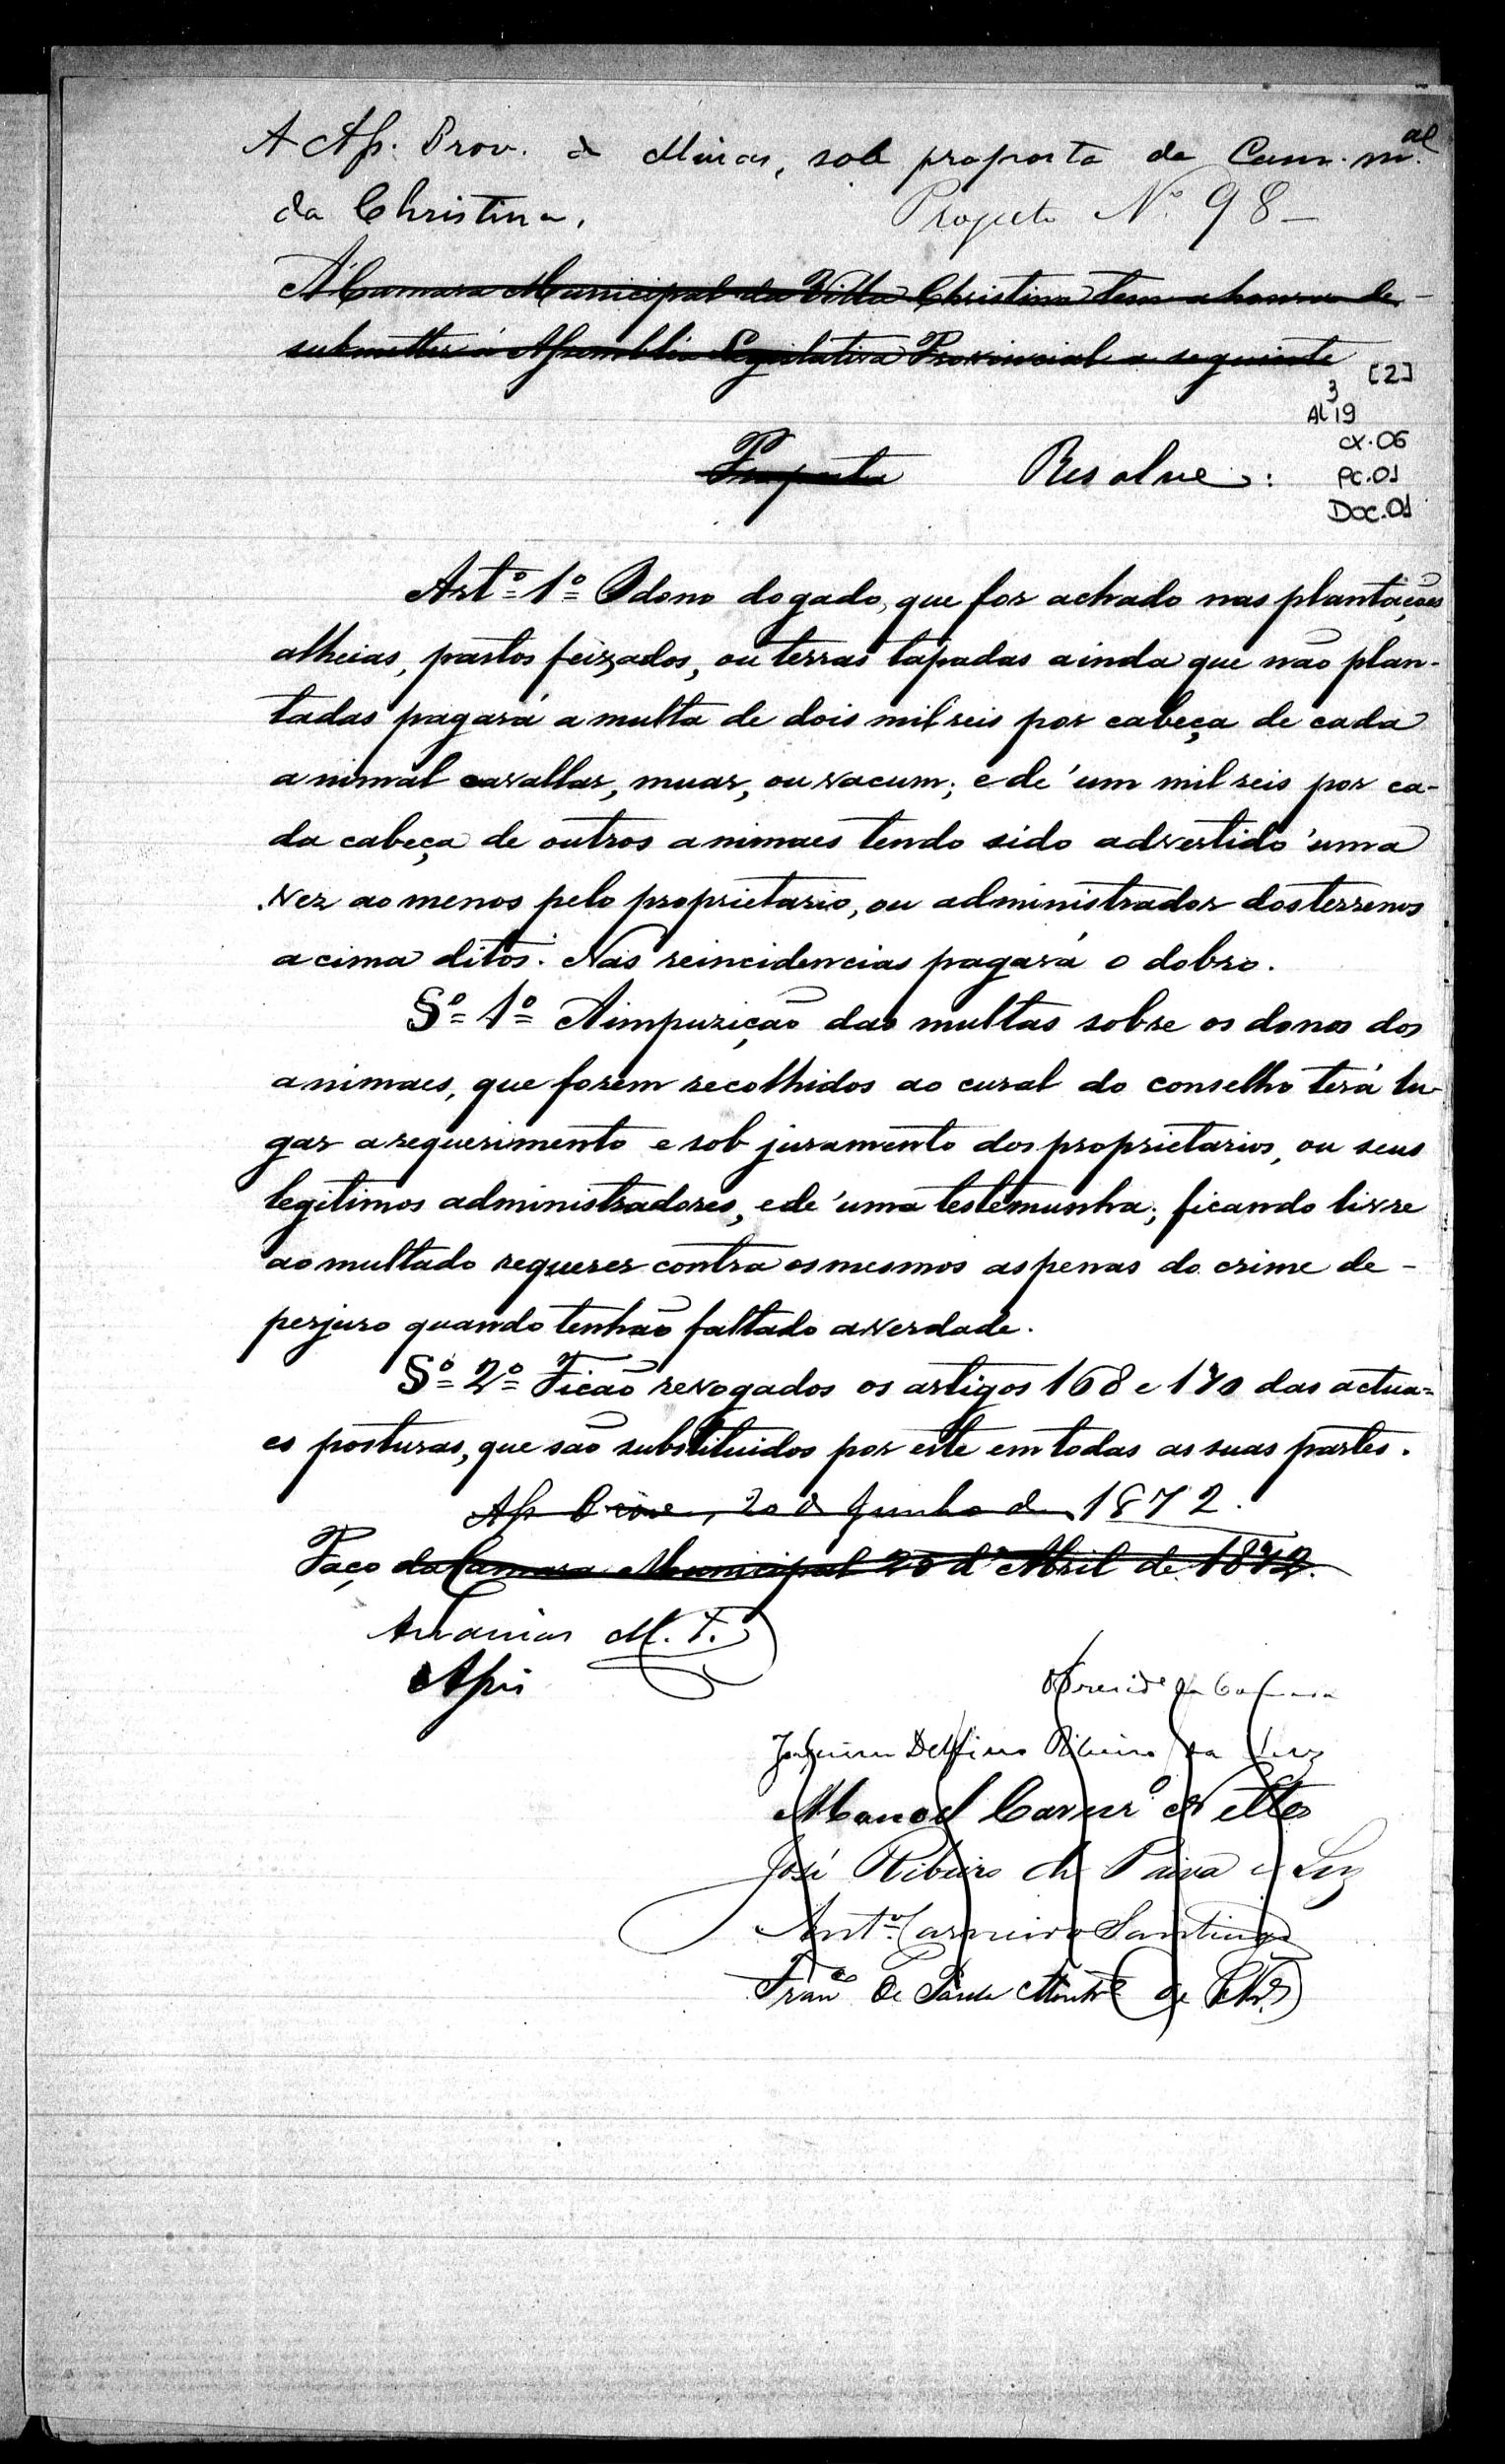 A Ass. Prov. de Minas, sob proposta da Cam. m.al
da Christina,
Projecto Nº 98 —
A Camara Municipal da Villa Christina tem a honra de
submetter á Assemblea Legislativa Provincial a seguinte
[2]
3
AL 19
CX.06
PC.01
DOC.01
Proposta Resolve:
Artº 1º O dono do gado, que for achado nas plantações
alheias, pastos feixados, ou terras tapadas ainda que não plan-
tadas pagará a multa de dois mil reis por cabeça de cada
animal cavallar, muar, ou vacum; e de um mil reis por ca-
da cabeça de outros animaes tendo sido advertido uma
vez ao menos pelo proprietario, ou administrador dos terrenos
acima ditos. Nas reincidencias pagará o dobro.
§º 1º A impuzição das multas sobre os donos dos
animaes, que forem recolhidos ao cural do conselho terá lu-
gar a requerimento e sob juramento dos proprietarios, ou seus
legitimos administradores, e de uma testemunha; ficando livre
ao multado requerer contra os mesmos as penas do crime de -
perjuro quando tenhão faltado a verdade.
§º 2º Ficão revogados os artigos 168 e 170 das actua=
es posturas, que são substituidos por este em todas as suas partes.
20 de Junho de 1872.
Paço da Camara Municipal 20 d'Abril de 1872.
M. F.
Joaquim Delfino Ribeiro da Luz
Manoel Carnrº Netto
José Ribeiro de Paiva e Luz
Antº Carneiro Santiago
Franco de Paula